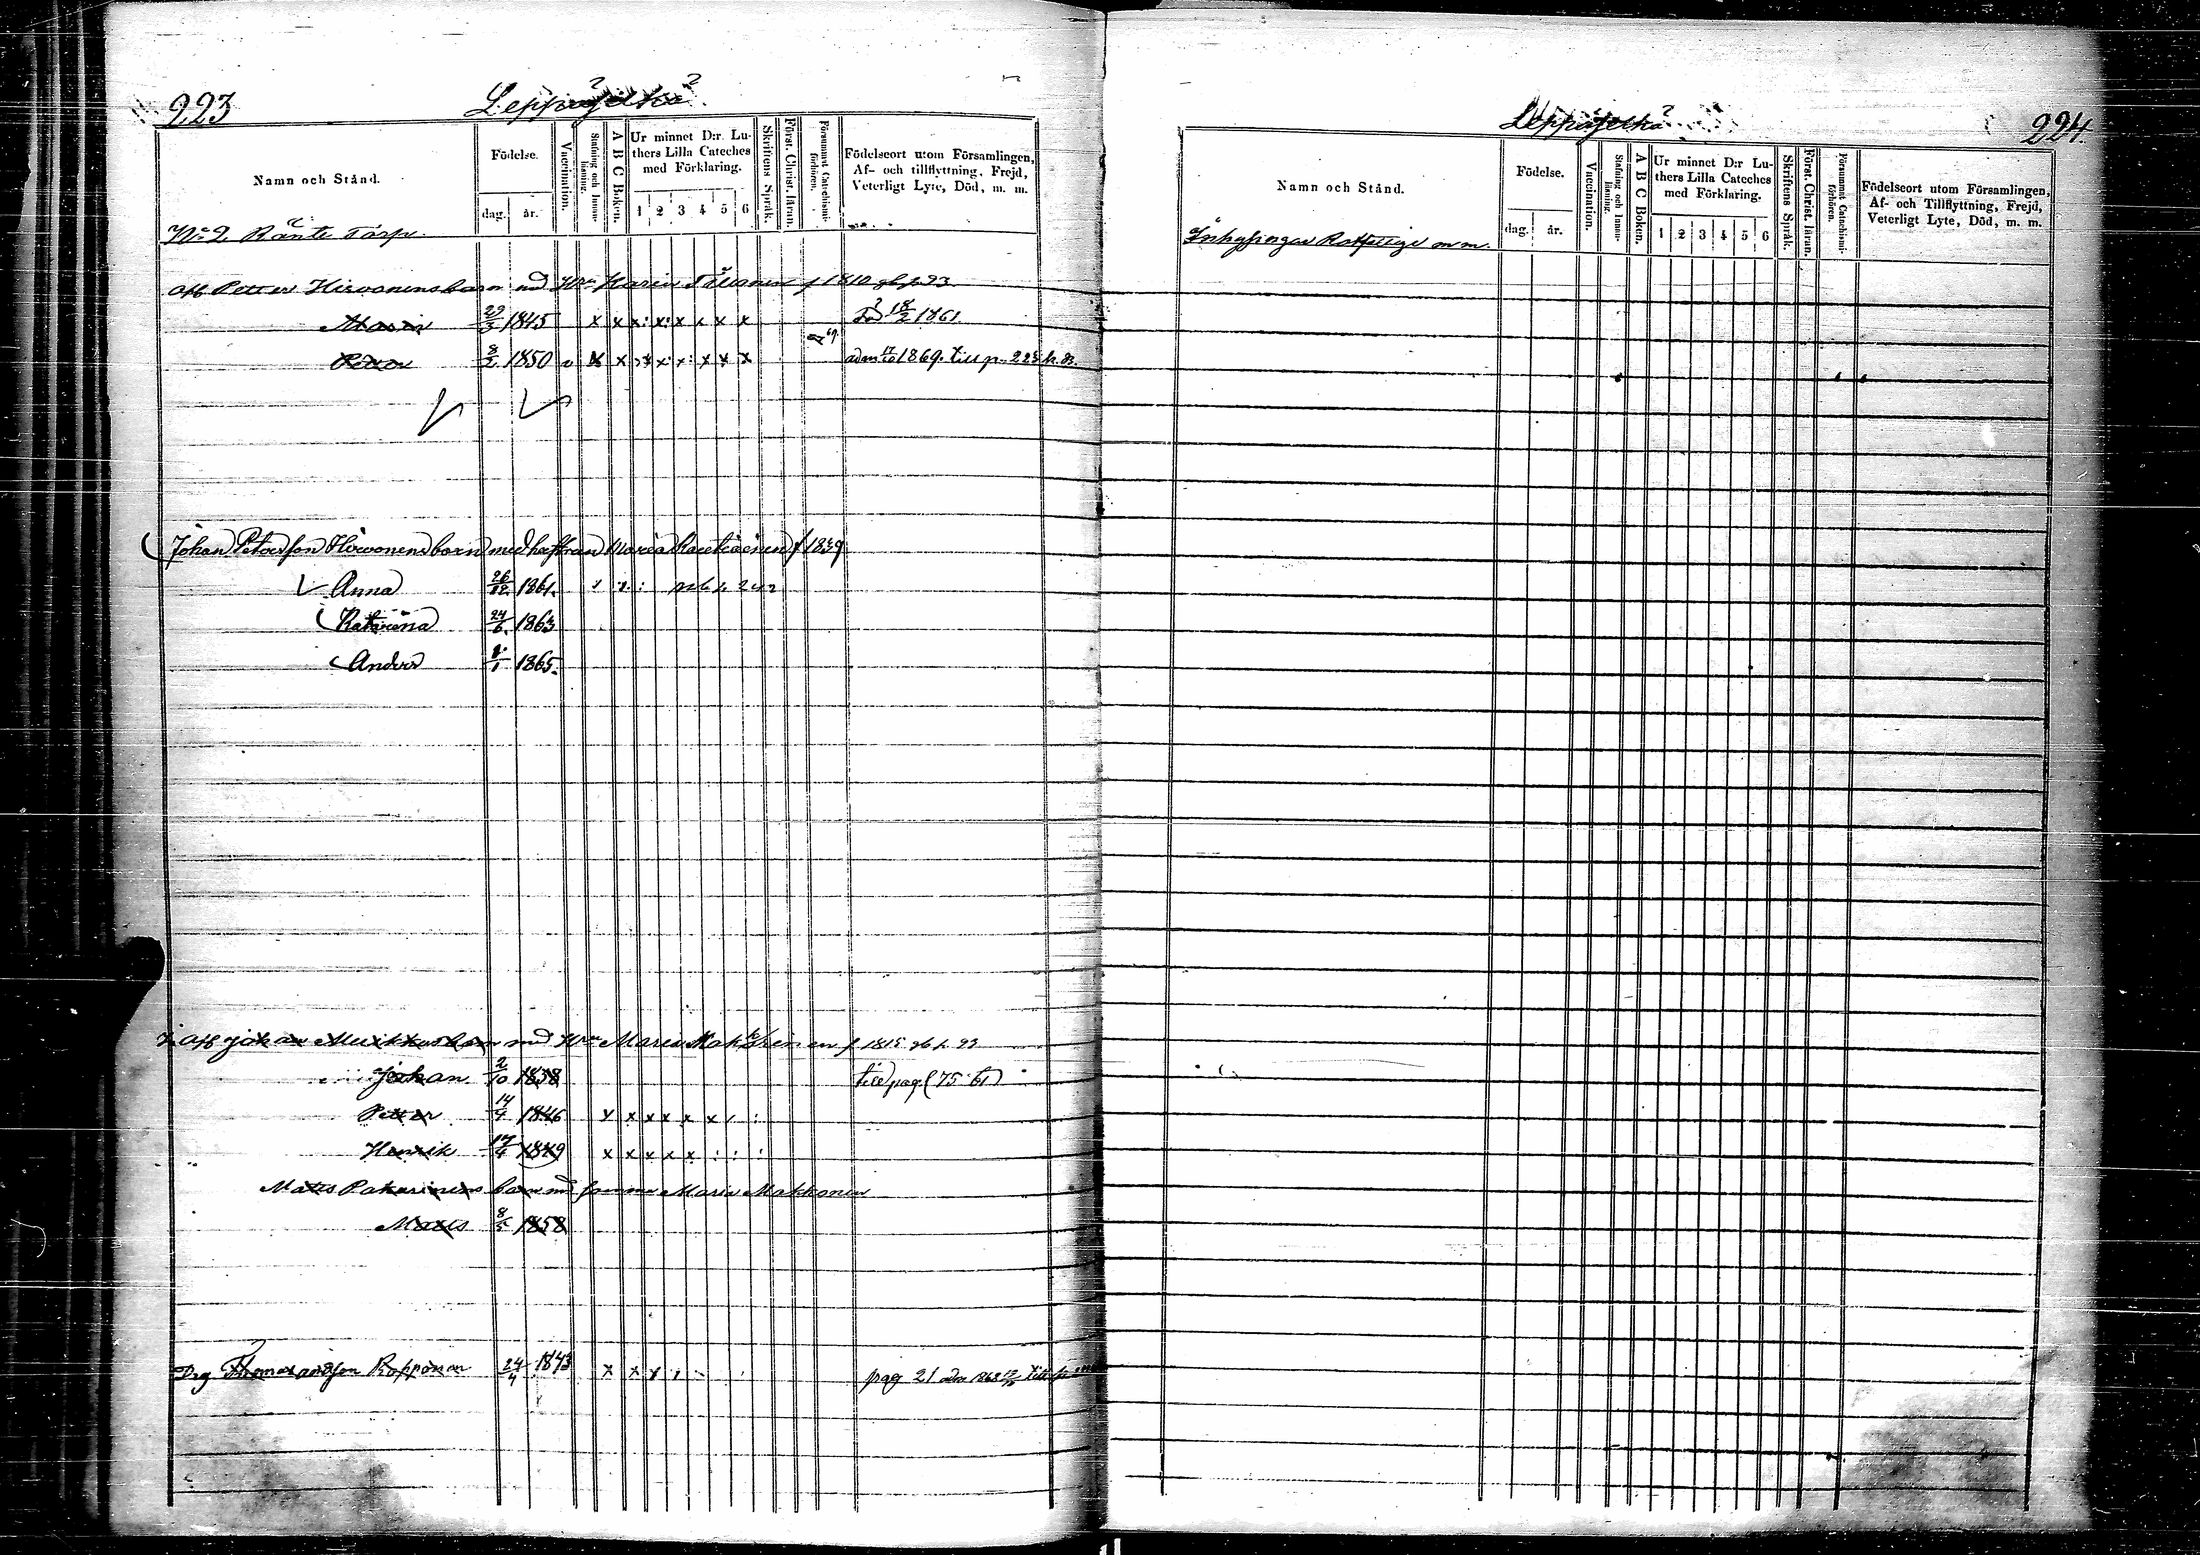 223
Leppäselkä
Namn och Stånd.
Födelse.
dag. år.
Vaccination.
Stafning och Innan-läsning.
A B C Boken.
Ur minnet D:r. Lu-
thers Lilla Cateches
med Förklaring.
1 2 3 4 5 6
Skriftens Språk.
Först. Christ. läran.
Försummat Catechismi-förhören.
Födelseort utom Församlingen,
Af- och tillflyttning, Frejd,
Veterligt Lyte, Död, m. m.
No 2 Ränte Torp
Afl Petter Hirvonens barn md Hru Maria f 1810 p. 93
Maria 29/3 1845 x x x: x: x x x x Död 18/2 1861
Petter 8/2 1850 x x x x: x: x x x 69 adm 17/10 1869. till p. 225 k.B.
Johan Petersson Hirvonens barn med hustrun Maria f 1839
Anna 26/12 1861.
Katarina 24/6 1863
Anders 1/1 1865
Afl Johan Muikkus barn md Hru Maria f 1815 p 93
Johan 2/10 1838 till pag (75 61)
Petter 14/4 1846 x x x x x x
Henrik 17/4 1849 x x x x x : : :
Matts Pakarinens barn md samma Maria Makkonen
Matts 8/5 1858
Drg Thomas andsson Ropponen 24/4 1843 x x x pag 21 adm 1868 till p
Leppäselkä
224.
Namn och Stånd.
Födelse.
dag. år.
Vaccination.
Stafning och Innan-läsning.
A B C Boken.
Ur minnet D:r Lu-
thers Lilla Cateches
med Förklaring.
1 2 3 4 5 6
Skriftens Språk.
Först. Christ. läran.
Försummat Catechismi-förhören.
Födelseort utom Församlingen,
Af- och Tillflyttning, Frejd,
Veterligt Lyte, Död, m. m.
Inhysingar Rotfattige m m.